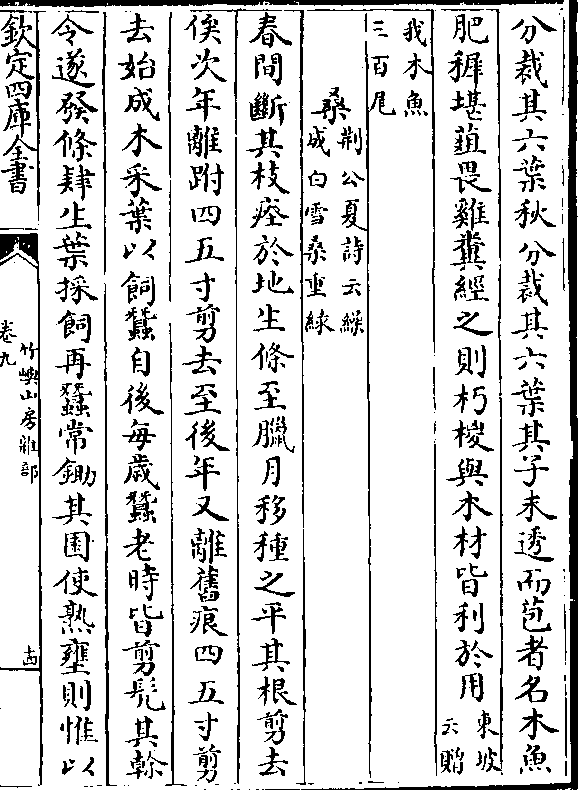 分裁其六葉秋分裁其六葉其子未透而苞者名木魚
肥穉堪葅畏雞糞經之則朽椶與木材皆利於用東坡云贈
我木魚三百尾
桑荆公夏詩云繰成白雪桑重緑
春間斷其枝瘞於地生條至臘月移種之平其根剪去
俟次年離跗四五寸剪去至後年又離舊痕四五寸剪
去始成木采葉以飼蠶自後每歳蠶老時皆剪髠其榦
令遂發條肄生葉採飼再蠶常鋤其園使熟壅則惟以
欽定四庫全書
竹嶼山房雜部
卷九
十四